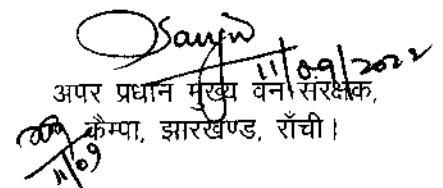 Sanjiv
11/09/2022
अपर प्रधान मुख्य वन संरक्षक,
कैम्पा, झारखण्ड, राँची।
11/09